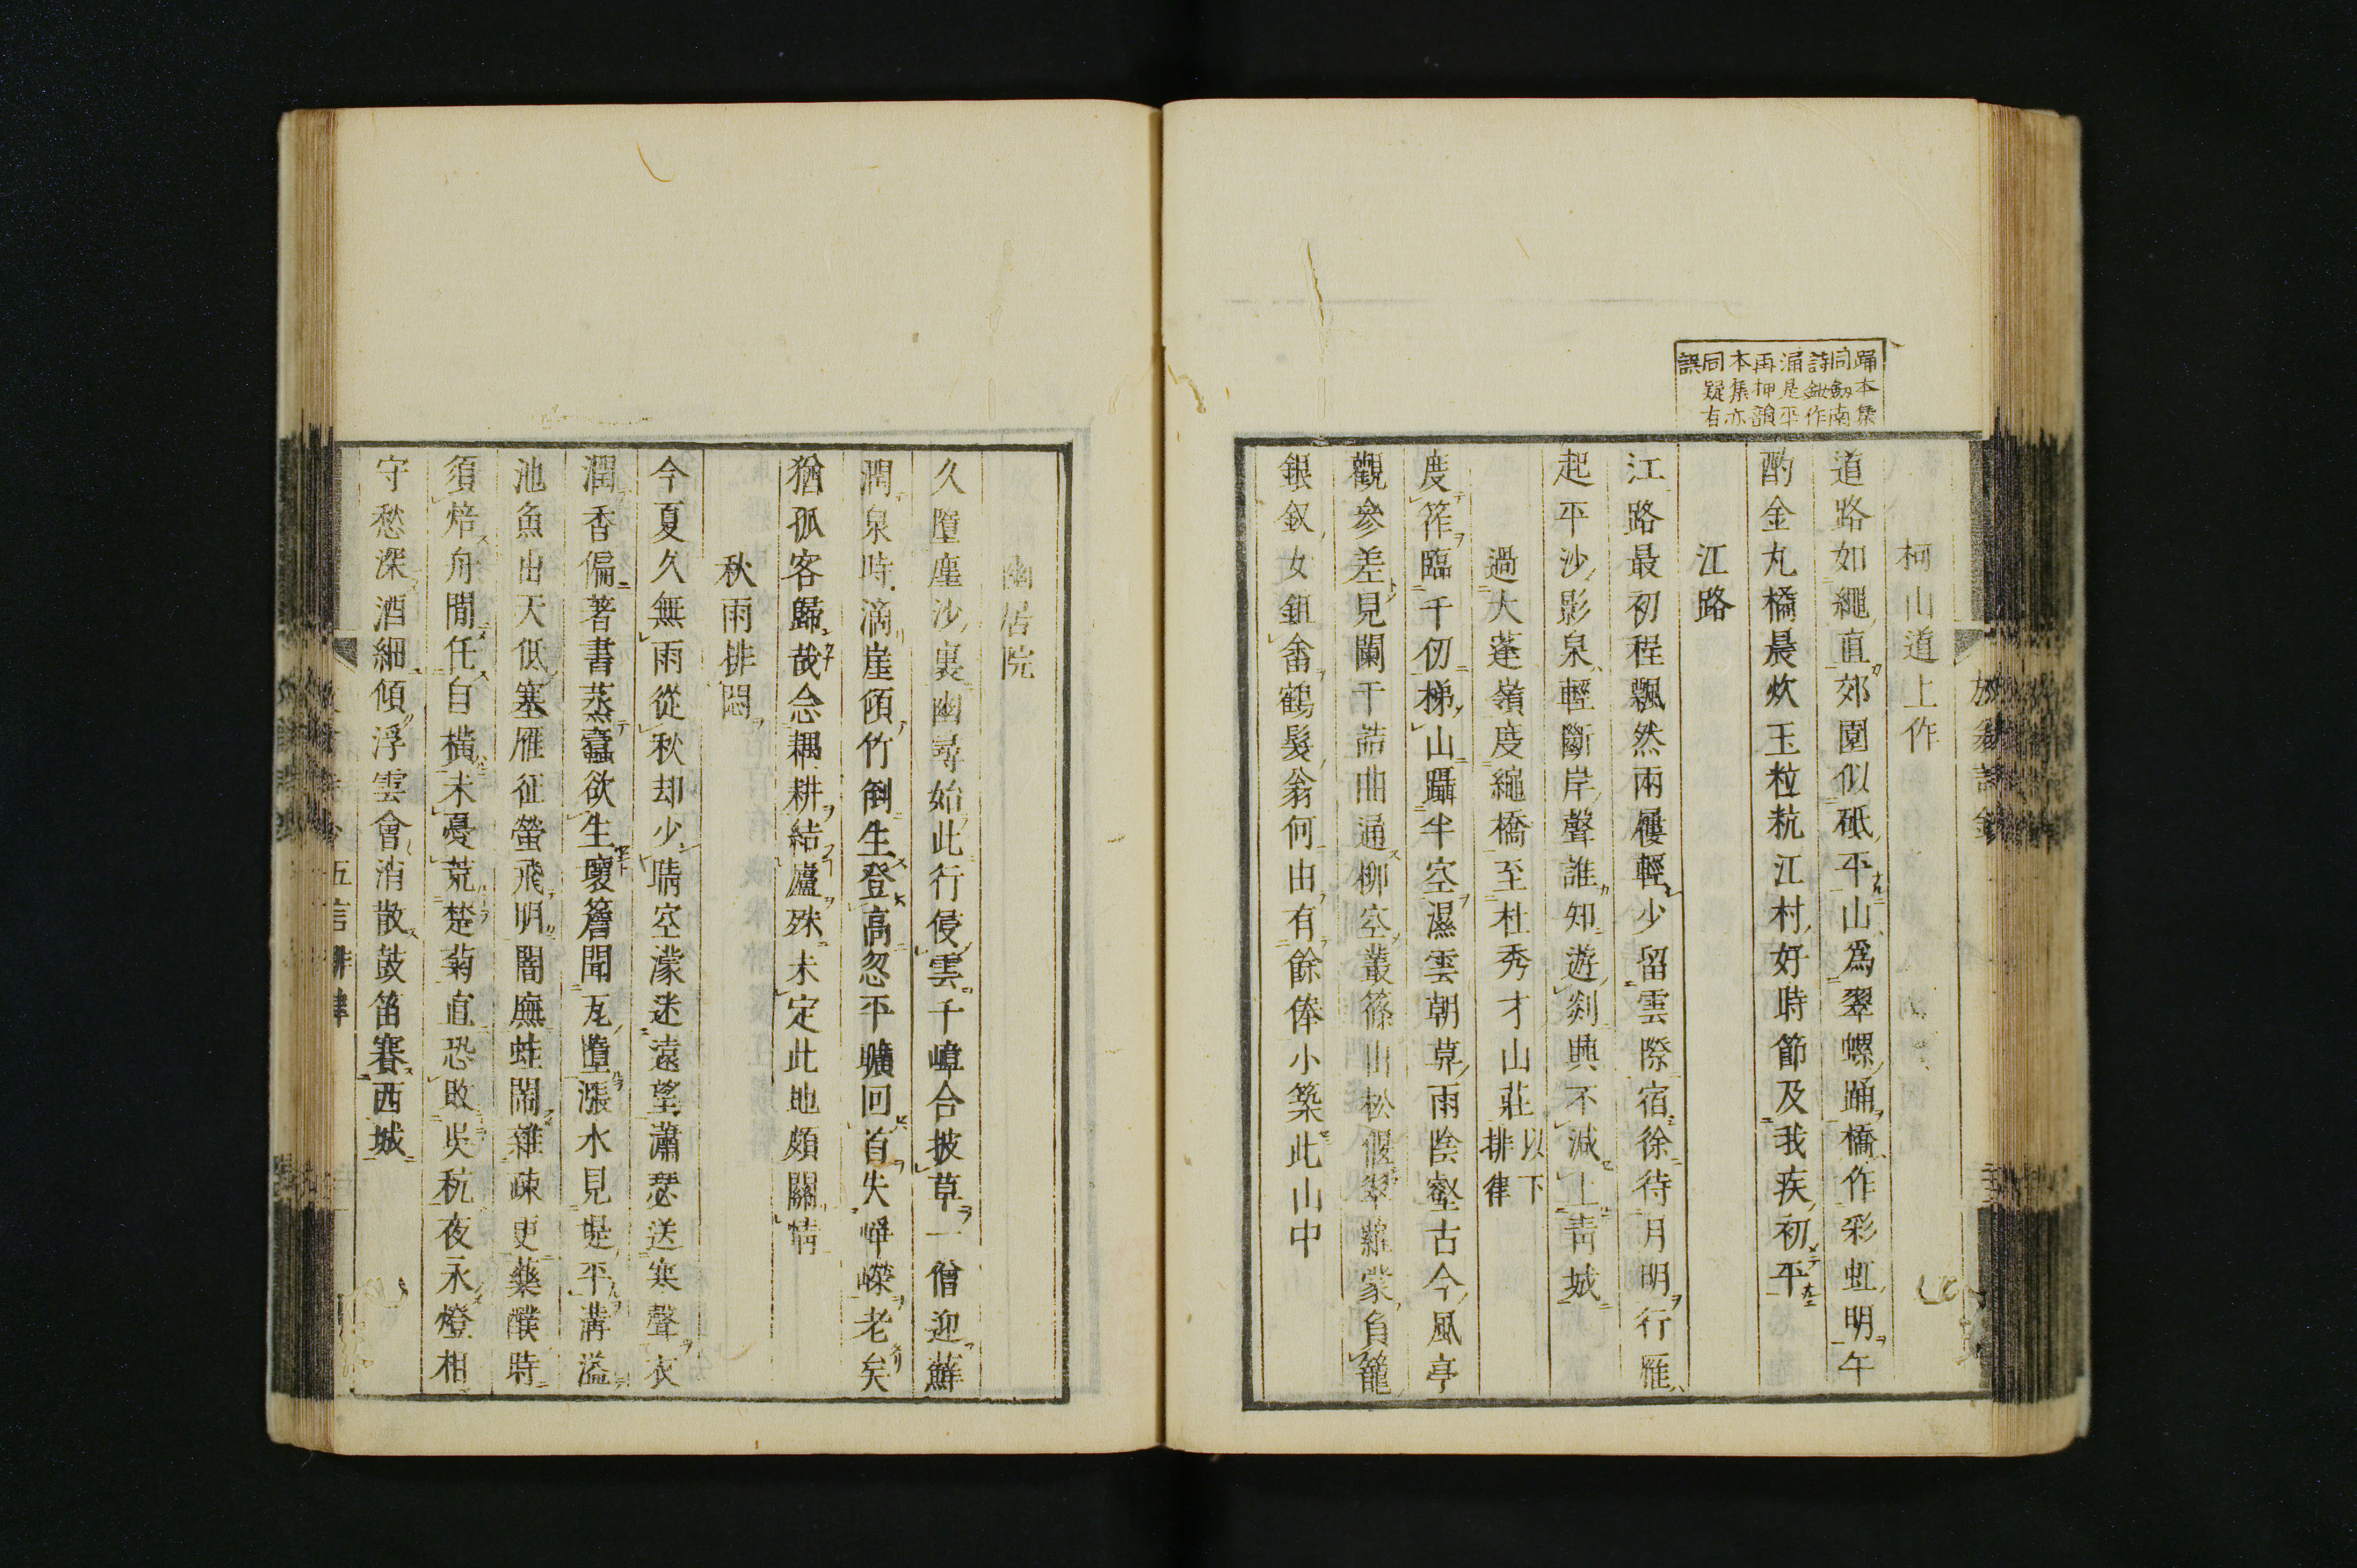 踊本集
同劔南
詩鈔作
涌是平
再押韻
本集亦
同疑有
誤
柯山道上作
道路如繩直郊園似砥平山爲翠螺踊橋作彩虹明午
酌金丸橘晨炊玉粒秔江村好時節及我疾初平
江路
江路最初程飄然兩屨輕少留雲際宿徐待月明行雁
起平沙影泉輕斷岸聲誰知遊剡興不減上青城
過大蓬嶺度繩橋至杜秀才山莊以下排律
度筰臨千仞梯山躡半空濕雲朝暮雨陰壑古今風亭
觀參差見闌干詰曲通柳空叢篠出松偃翠蘿蒙負籠
銀釵女鉏畬鶴髮翁何由有餘俸小築此山中
幽居院
久墮塵沙裏幽尋始此行侵雲千嶂合披草一僧迎蘚
澗泉時滴崖傾竹倒生登高忽平曠回首失崢嶸老矣
猶孤客歸哉念耦耕結廬殊未定此地頗關情
秋雨排悶
今夏久無雨從秋却少晴空濛迷遠望瀟瑟送寒聲衣
潤香偏著書蒸蠹欲生壞簷聞瓦墮漲水見堤平溝溢
池魚出天低塞雁征螢飛明闇廡蛙鬧雜疎更藥醭時
須焙舟閒任自橫未憂荒楚菊直恐敗吳秔夜永燈相
守愁深酒細傾浮雲會消散鼓笛賽西城
五言排律